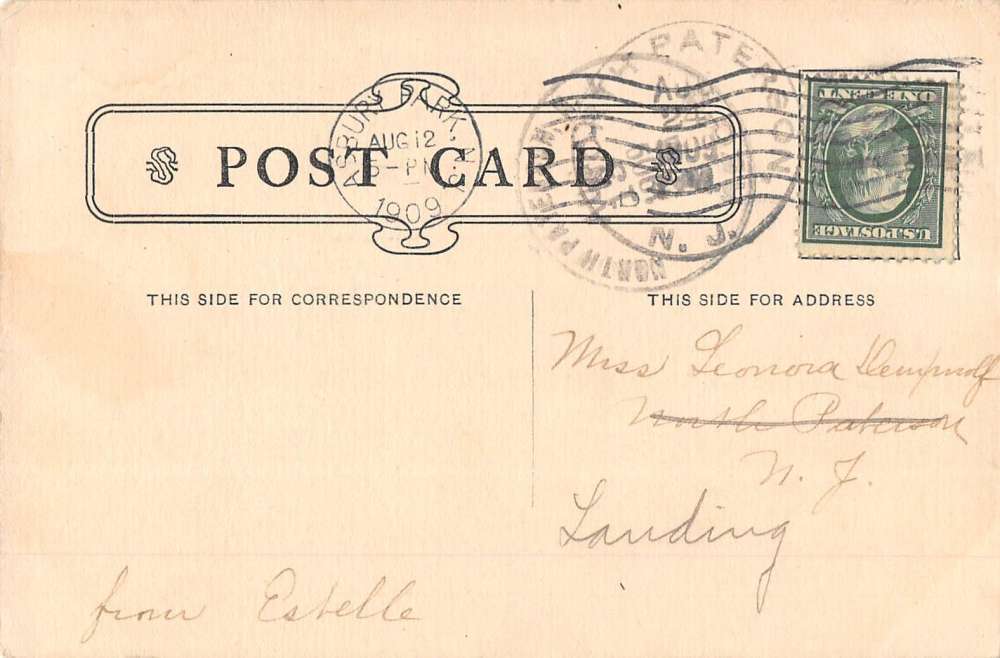 POST CARD
ASBURY PARK, N.J.
AUG 12
-PM
1909
NORTH PATERSON
N. J.
U.S. POSTAGE
ONE CENT
THIS SIDE FOR CORRESPONDENCE
THIS SIDE FOR ADDRESS
Miss Leonora Dempwolf
North Paterson
N. J.
Landing
from Estelle